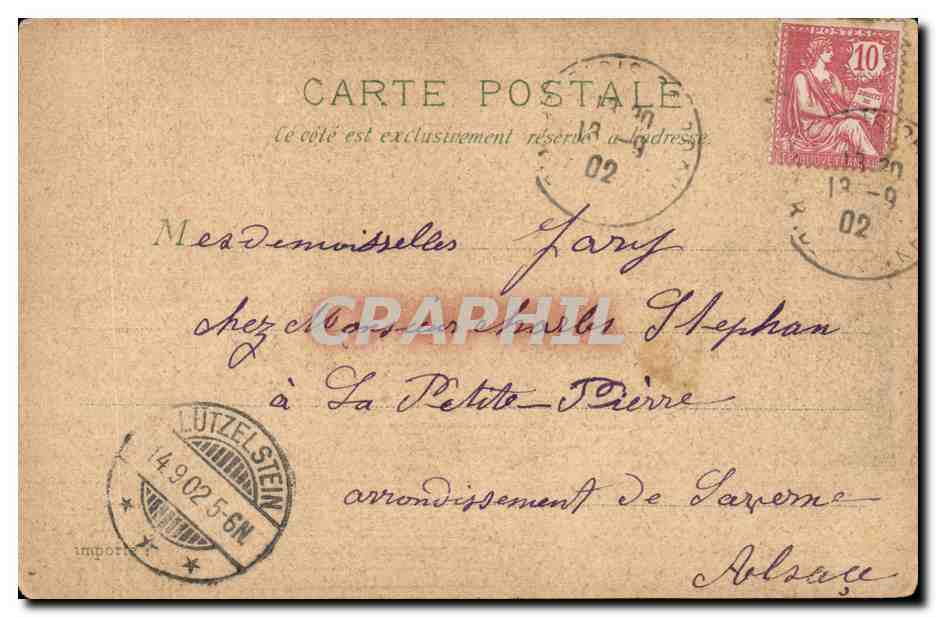 CARTE POSTALE
Ce côté est exclusivement réservé a l'adresse.
POSTES
10
REPUBLIQUE FRANCAISE
13 -9
02
13 -9
02
Mesdemoisselles Jary
chez Monsieur Charles Stephan
CPARAPHIL
à La Petite-Pièrre
LUTZELSTEIN
14.9.02.5-6N.
arrondissement de Saverne
importé
Alsaçe